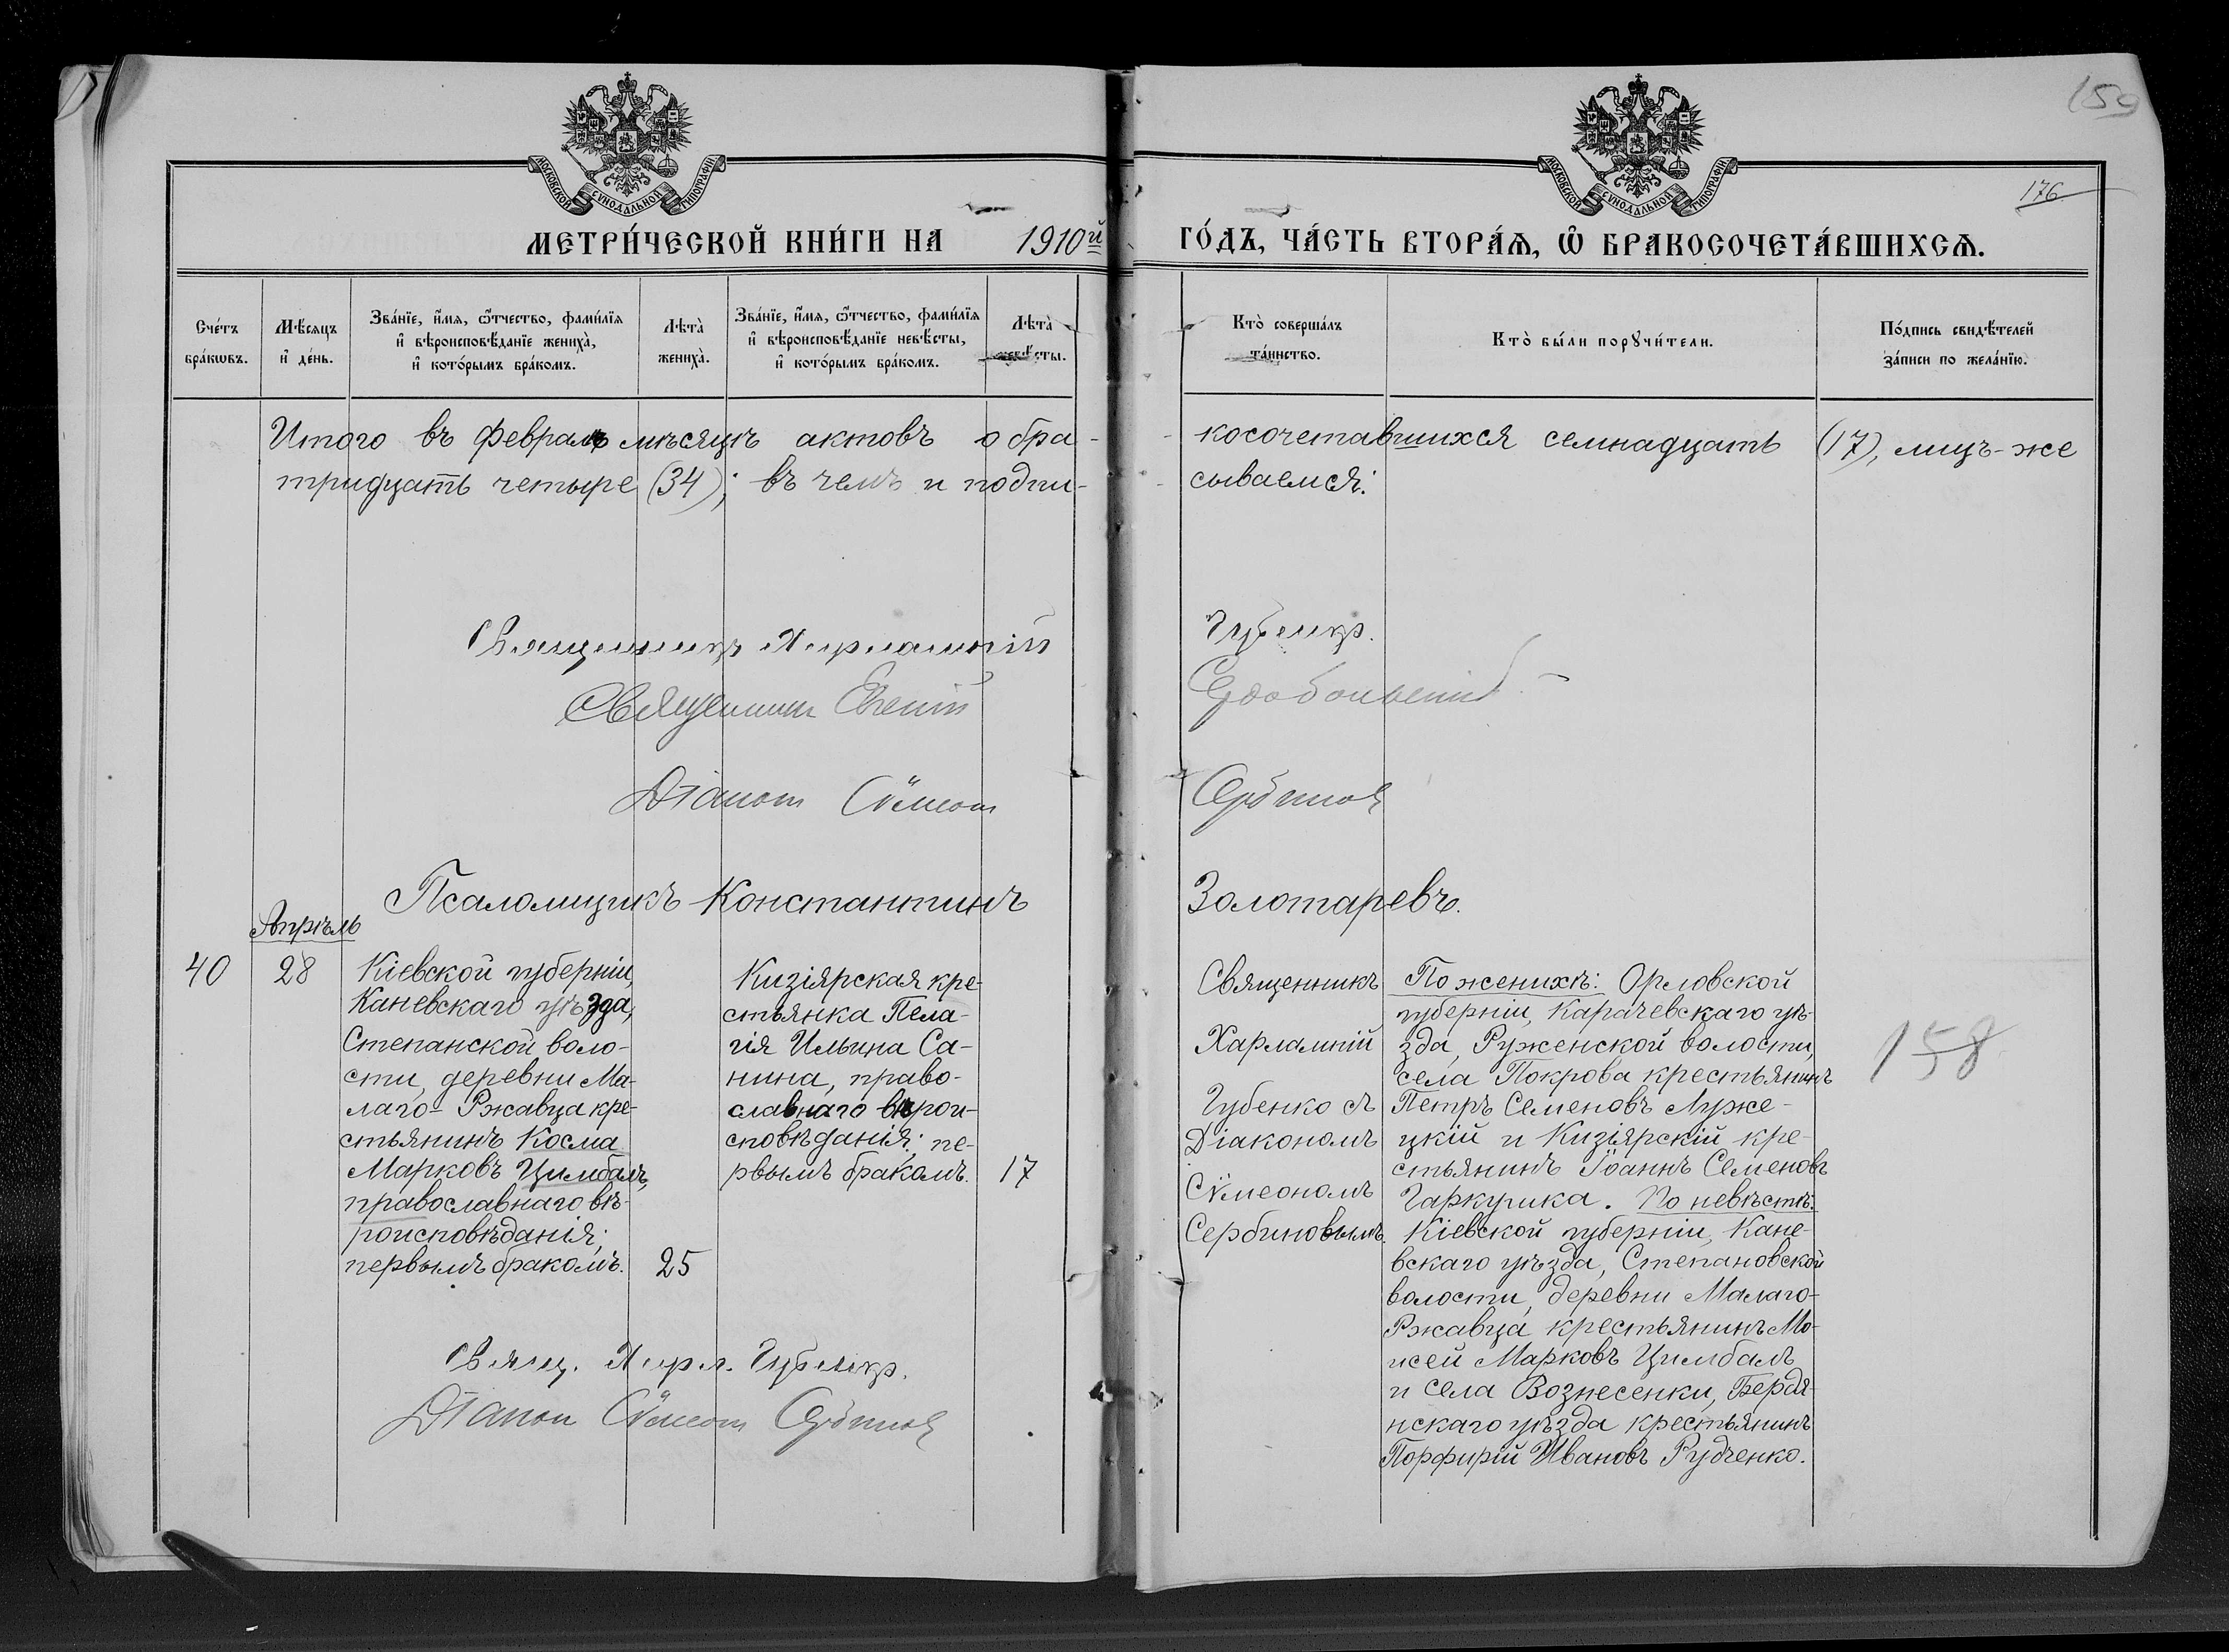 150
176
МОСКОВСКОЙ СѴНОДАЛЬНОЙ ТИПОГРАФІИ
МОСКОВСКОЙ СѴНОДАЛЬНОЙ ТИПОГРАФІИ
МЕТРИ́ЧЕСКОЙ КНИ́ГИ НА 1910й ГО́ДЪ, ЧА́СТЬ ВТОРА́Ѧ, Ѡ҆ БРАКОСОЧЕТА́ВШИХСѦ.
Сче́тъ бра́кѡвъ.
Мѣ́сяцъ и҆ де́нь.
Зва́нїе, и҆́мѧ, ѻ҆́тчество, фами́лїѧ и҆ вѣроисповѣ́данїе жениха̀, и҆ кото́рымъ бра́комъ.
Лѣта̀ жениха̀.
Зва́нїе, и҆́мѧ, ѻ҆́тчество, фами́лїѧ и҆ вѣроисповѣ́данїе невѣ́сты, и҆ кото́рымъ бра́комъ.
Лѣта̀ невѣ́сты.
Кто̀ соверша́лъ та́инство.
Кто̀ бы́ли порꙋчи́тели.
По́дпись свидѣ́телей за́писи по жела́нїю.
Итого въ Февралѣ мѣсяцѣ актовъ о бра-
косочетавшихся семнадцать (17), лицъ-же
тридцать четыре (34); въ чемъ и подпи-
сываемся:
Священникъ Харлампій Губенко.
Священникъ
Діаконъ Сѵмеонъ Сербиновъ
Псаломщикъ Константинъ Золотаревъ.
Апрѣль
40
28
Кіевской губерніи,
Каневскаго уѣзда,
Степанской воло-
сти, деревни Ма-
лаго-Ржавца кре-
стьянинъ Косма
Марковъ Цимбалъ,
православнаго вѣ-
роисповѣданія;
первымъ бракомъ.
25
Кизіярская кре-
стьянка Пела-
гія Ильина Са-
нина, право-
славнаго вѣрои-
сповѣданія; пе-
рвымъ бракомъ.
17
Священникъ
Харлампій
Губенко съ
Діакономъ
Сѵмеономъ
Сербиновымъ.
По женихѣ: Орловской
губерніи, Карачевскаго уѣ-
зда, Руженской волости,
села Покрова крестьянинъ
Петръ Семеновъ Луже-
цкій и Кизіярскій кре-
стьянинъ Іоаннъ Семеновъ
Гаркушка. По невѣстѣ:
Кіевской губерніи, Кане-
вскаго уѣзда, Степановской
волости, деревни Малаго-
Ржавца крестьянинъ Мо-
исей Марковъ Цимбалъ
и села Вознесенки, Бердя-
нскаго уѣзда крестьянинъ
Порфирій Ивановъ Рудченко.
158
Свящ. Харл. Губенко.
Діаконъ Сѵмеонъ Сербиновъ